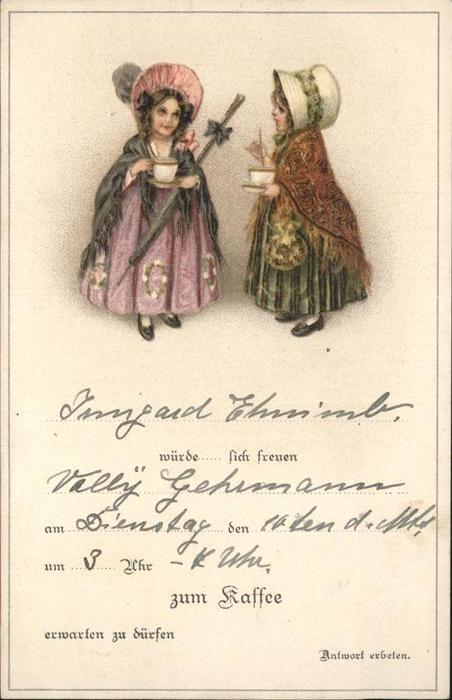 Irmgard
würde sich freuen
Vally Gehrmann
am Dienstag den 10ten d. Mts.
um 3 Uhr - Uhr.
zum Kaffee
erwarten zu dürfen
Antwort erbeten.